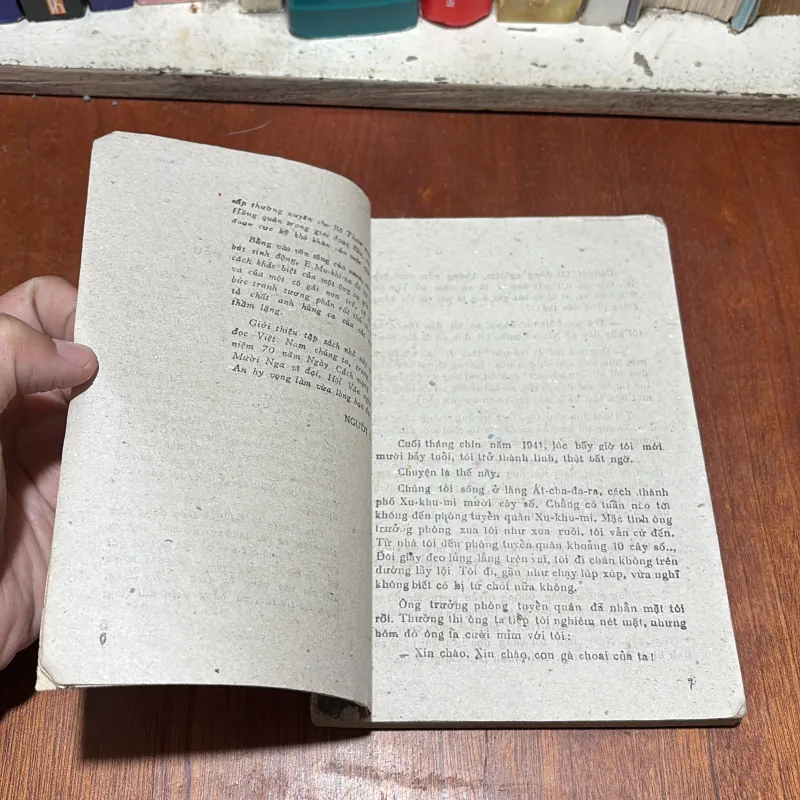 cấp thường xuyên cho Bộ Tham
Hồng quân trong giai đoạn
đoạn cực kỳ khó khăn của
Bằng vào vốn sống của
bút sinh động, E.Mu-khi-na đã
cách khác biệt của một ông
và của một cô gái non trẻ,
bức tranh tương phản rất
tả chất anh hùng ca của
thầm lặng.
Giới thiệu tập sách nhỏ này
đọc Việt Nam chúng ta, trong
niệm 70 năm Ngày Cách mạng
Mười Nga vĩ đại, Hội Văn
An hy vọng làm vừa lòng bạn đọc
NGƯỜI
6
Cuối tháng chín năm 1941, lúc bấy giờ tôi mới
mười bảy tuổi, tôi trở thành lính, thật bất ngờ.
Chuyện là thế này.
Chúng tôi sống ở làng Át-cha-đa-ra, cách thành
phố Xu-khu-mi mười cây số. Chẳng có tuần nào tôi
không đến phòng tuyển quân Xu-khu-mi. Mặc tình ông
trưởng phòng xua tôi như xua ruồi, tôi vẫn cứ đến.
Từ nhà tôi đến phòng tuyển quân khoảng 10 cây số...
Đôi giày đeo lủng lẳng trên vai, tôi đi chân không trên
đường lầy lội. Tôi đi, gần như chạy lúp xúp, vừa nghĩ
không biết có bị từ chối nữa không.
Ông trưởng phòng tuyển quân đã nhẵn mặt tôi
rồi. Thường thì ông ta tiếp tôi nghiêm nét mặt, nhưng
hôm đó ông ta cười mỉm với tôi:
— Xin chào. Xin chào, con gà choai của ta!
7